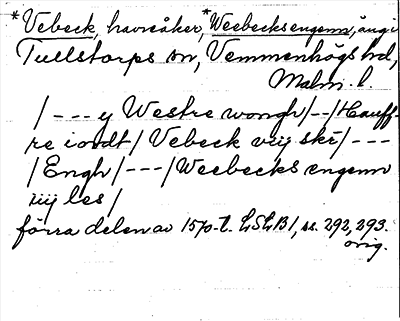 *Vebeck, havreåker, *Weebecks engenn, äng i
Tullstorps sn, Vemmenhögs hd,
Malm. l.
/ - - - y Westre wongh / - - / Hauff-
re iordt / Vebeck viij skr / - - -
/ Engh / - - - / Weebecks engenn
iiij les /
förra delen av 1570-t. LSLB1, ss. 292, 293.
orig.